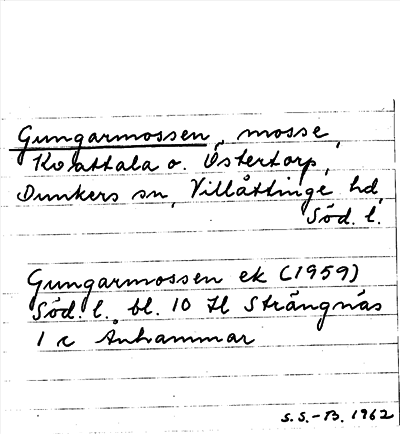 Gungarmossen, mosse,
Kvattala o. Östertorp,
Dunkers sn, Villåttinge hd,
Söd. l.
Gungarmossen ek (1959)
Söd. l. bl. 10 Il Strängnäs
1 c Ånhammar
S.S.-B. 1962